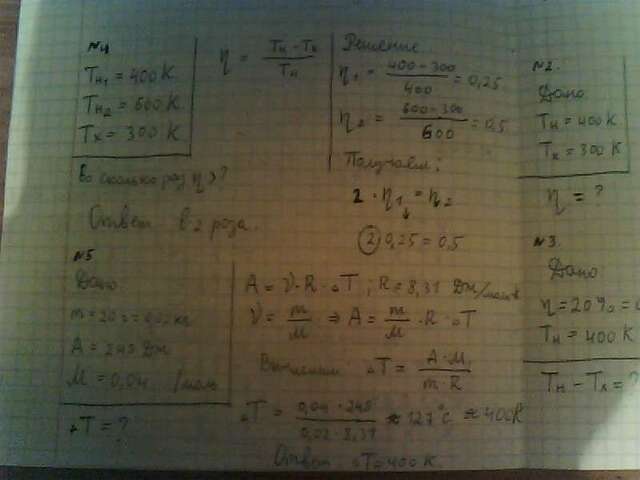 №4
Tн₁ = 400 К
Tн₂ = 600 К
Tх = 300 К
Во сколько раз η >?
Ответ в 2 роза.
η = Tн - Tх / Tн
Решение
η₁ = 400 - 300 / 400 = 0,25
η₂ = 600 - 300 / 600 = 0,5
Получаем:
2 · η₁ = η₂
↓
② 0,25 = 0,5
№2.
Дано
Tн = 400К
Tх = 300 К
η = ?
№3.
Дано
η = 20% =
Tн = 400 К
Tн - Tх = ?
№5
Дано
m = 20 г = 0,02 кг
A = 249 Дж
M = 0,04 /моль
△T = ?
A = ν · R · △T ; R = 8,31 Дж/моль·К
ν = m / M ⇒ A = m / M · R · △T
△T = A · M / m · R
△T = 0,04 · 249 / 0,02 · 8,31 ≈ 127°C ≈ 400К
Ответ △T = 400 К.